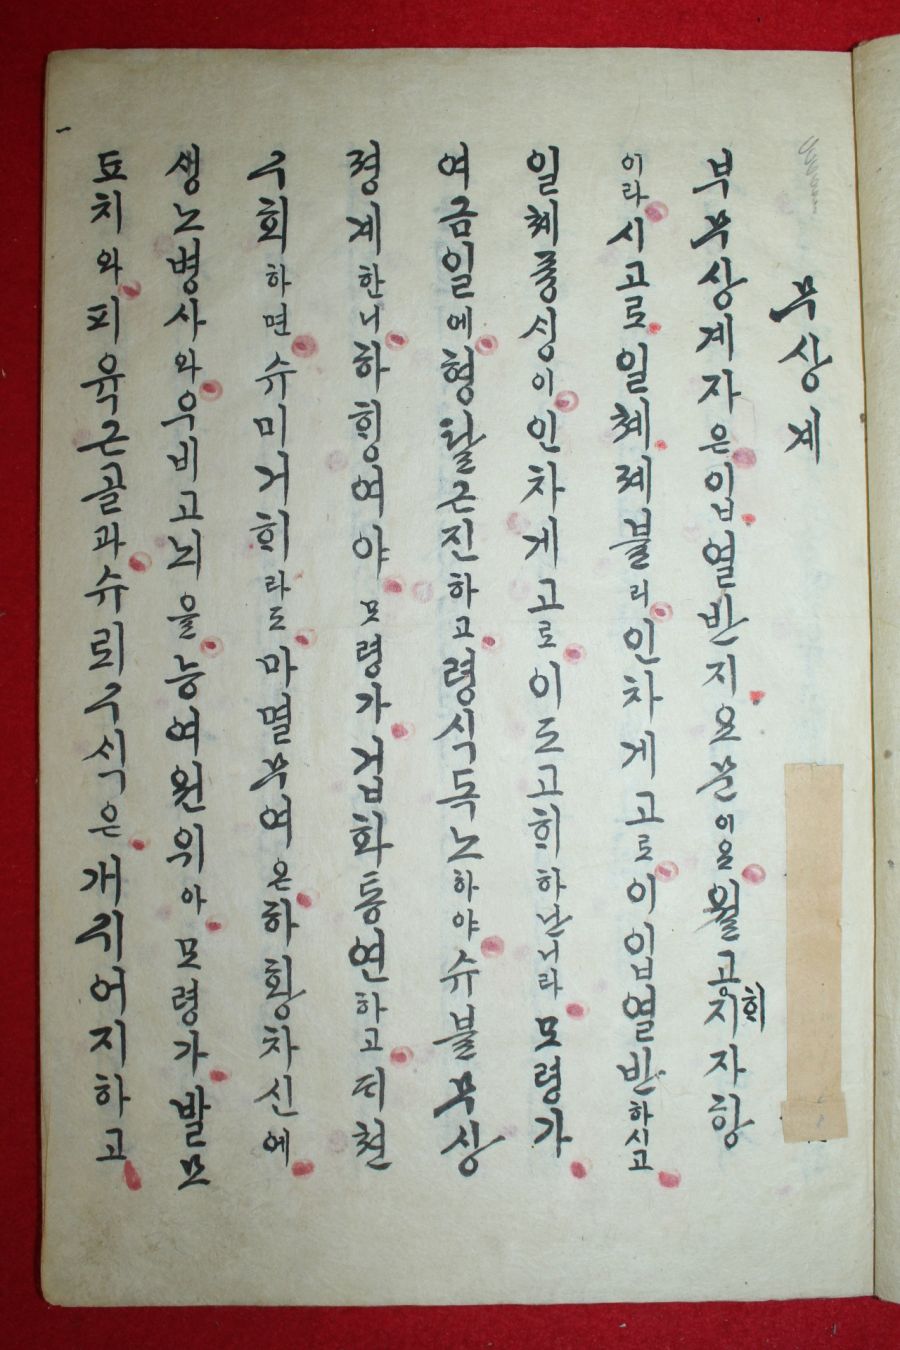 무상계
부무상계자은입열반지요문이요월공지회자항
이라시고로일체졔불리인차계고로이입열반하시고
일체즁싱이인차게고로이도고희하난니라모령가
여금일에형탈근진하고령식독노하야슈불무상
졍계한니하힝여야모령가겁화통연하고되쳔
구회하면슈미거희라도마멸무여은하황차신에
생노병사와우비고뇌을능여원위아모령가발모
됴치와피육근골과슈뢰구식은개귀어지하고